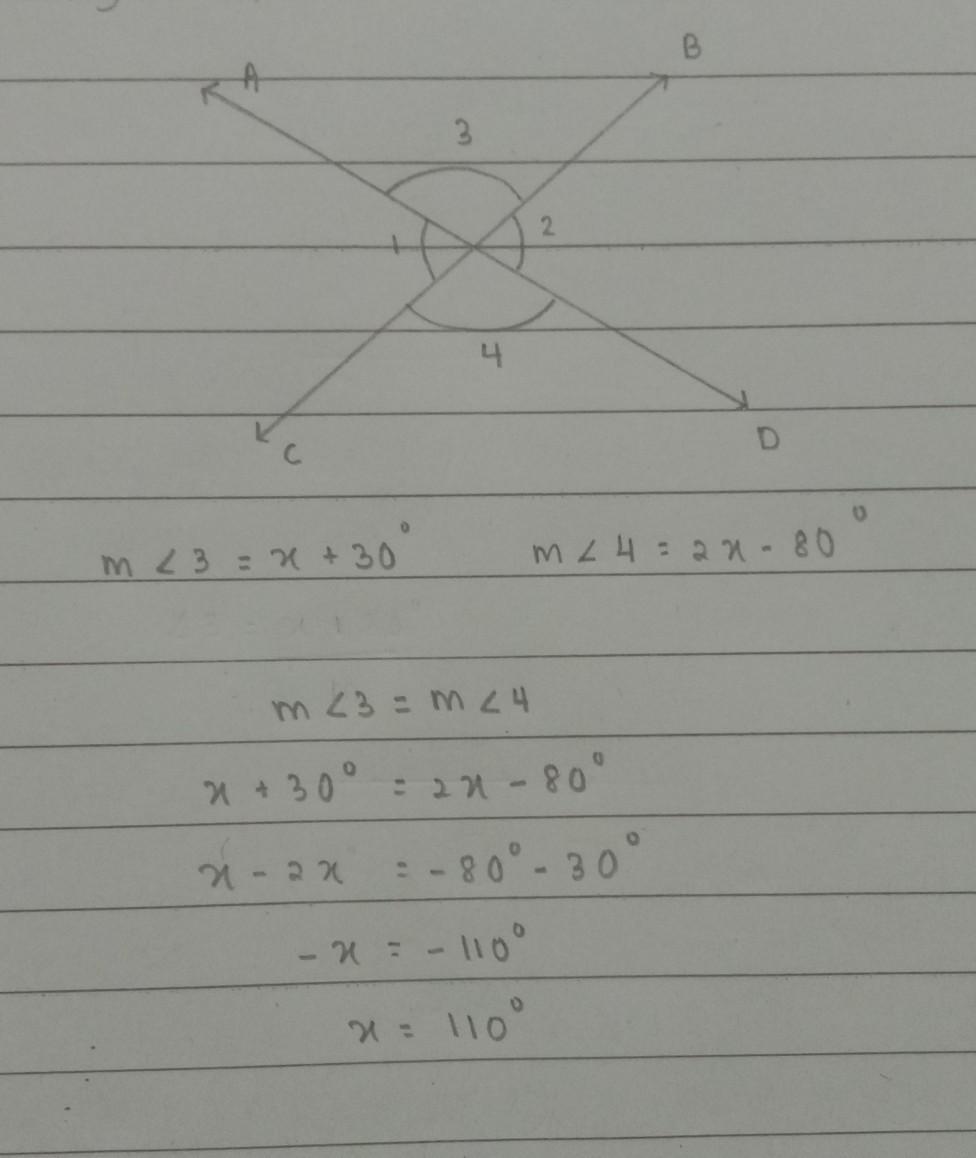 A B
3
1 2
4
C D
m∠3 = x + 30° m∠4 = 2x - 80°
m∠3 = m∠4
x + 30° = 2x - 80°
x - 2x = -80° - 30°
-x = -110°
x = 110°